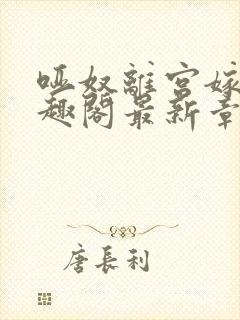 哑奴離宫嫁
趣閣最新章
唐長利